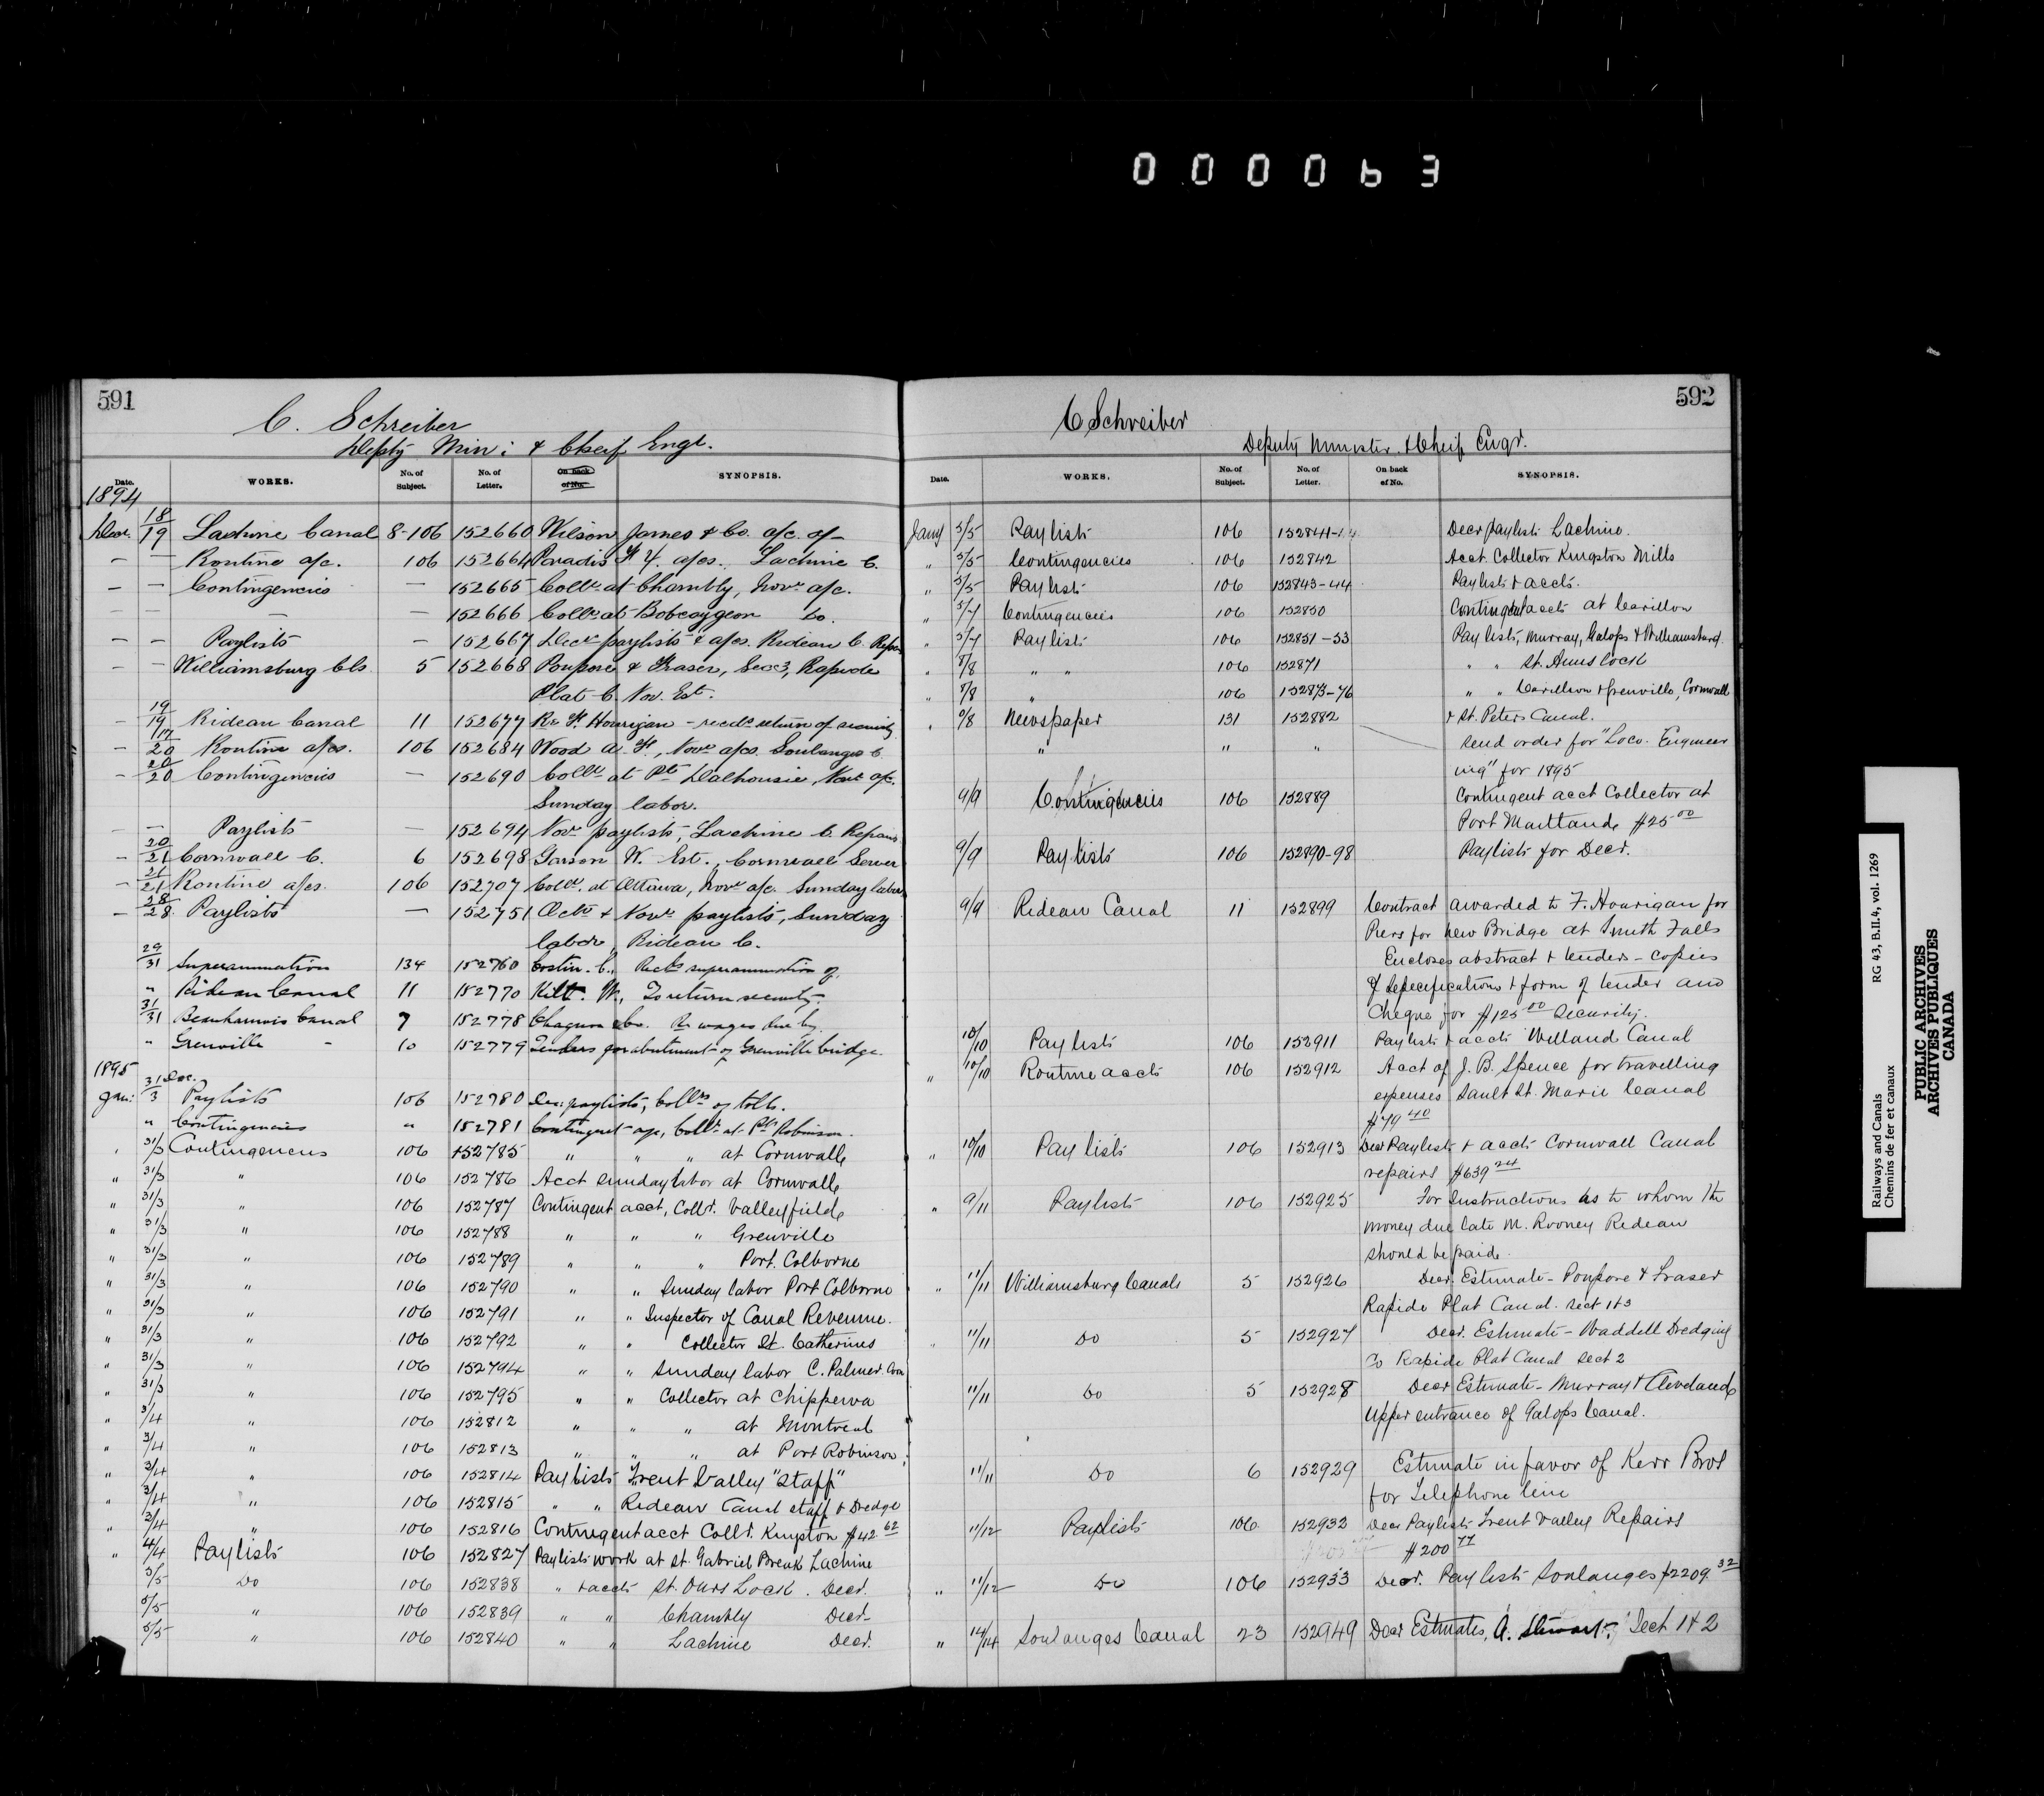 000063
591
C. Schreiber
Depty Min: & Cheif Engr.
Date. WORKS. No. of Subject. No. of Letter. On back of No. SYNOPSIS.
1894
Decr. 18/19 Lachine Canal 8-106 152660 Wilson James & Co. a/c. of
— — Routine a/c. 106 152664 Paradis a/cs. Lachine C.
— — Contingencies — 152665 Collr. at Chambly, Novr. a/c.
— — — — 152666 Collr. at Bobcaygeon Do.
— — Paylists — 152667 Decr paylists & a/cs. Rideau C. Repairs
— — Williamsburg Cls. 5 152668 Poupore & Fraser, Rapide
Plat C. Nov. Est.
— 19/19 Rideau Canal 11 152677 Re F. Hourigan — return of security
— 17/20 Routine a/cs. 106 152684 Wood A. F., Novr a/cs. Soulanges C.
— 20/20 Contingencies — 152690 Collr. at Pt. Dalhousie, Novr a/c.
Sunday labor.
— — Paylists — 152694 Novr paylists, Lachine C. Repairs
— 20/21 Cornwall C. 6 152698 Garson W. Est., Cornwall Sewer
— 21/21 Routine a/cs. 106 152707 Collr. at Ottawa, Novr a/c. Sunday labor
— 28/28 Paylists — 152751 Octr & Novr paylists, Sunday
labor, Rideau C.
29/31 Superannuation 134 152760 Costin. C., superannuation of.
" Rideau Canal 11 152770 Kilt. W., To return security.
31/31 Beauharnois Canal 7 152778 Chagnon & Co. Re wages due by.
" Grenville - 10 152779 Tenders for abutment of Grenville bridge.
1895
Jan: 31 Dec./3 Paylists 106 152780 Dec: paylists, Collrs of tolls.
" Contingencies " 152781 Contingent a/c, Collr. at Pt. Robinson.
" 31/3 Contingencies 106 152785 " " " at Cornwall
" 31/3 " 106 152786 Acct Sunday labor at Cornwall
" 31/3 " 106 152787 Contingent acct, Collr. Valleyfield
" 31/3 " 106 152788 " " " Grenville
" 31/3 " 106 152789 " " " Port Colborne
" 31/3 " 106 152790 " " Sunday labor Port Colborne
" 31/3 " 106 152791 " " Inspector of Canal Revenue.
" 31/3 " 106 152792 " " Collector St. Catherines
" 31/3 " 106 152794 " " Sunday labor C. Palmer
" 31/3 " 106 152795 " " Collector at Chippewa
" 3/4 " 106 152812 " " " at Montreal
" 3/4 " 106 152813 " " " at Port Robinson
" 3/4 " 106 152814 Paylists Trent Valley "Staff"
" 3/4 " 106 152815 " " Rideau Canal staff & Dredge
" 3/4 " 106 152816 Contingent acct Collr. Kingston $42.62
" 4/4 Paylists 106 152827 Paylists work at St. Gabriel Break Lachine
3/5 Do 106 152838 " & accts St. Ours Lock. Decr.
5/5 " 106 152839 " " Chambly Decr
5/5 " 106 152840 " " Lachine Decr.
592
C Schreiber
Deputy Minister & Cheif Engr.
Date. WORKS. No. of Subject. No. of Letter. On back of No. SYNOPSIS.
Jany 5/5 Paylists 106 152841 Decr paylists Lachine.
" 5/5 Contingencies 106 152842 Acct. Collector Kingston Mills
" 5/5 Paylists 106 152843-44 Paylists & accts.
" 5/7 Contingencies 106 152850 Contingent accts at Carillon
" 5/7 Paylists 106 152851-53 Pay lists, Murray, Galops & Williamsburg
" 8/8 " " 106 152871 " " St. Anns Lock
" 8/8 " 106 152873-76 " " Carillon & Grenville, Cornwall
& St. Peters Canal.
" 8/8 Newspaper 131 152882
" " " Send order for "Loco. Engineer
ing" for 1895
9/9 Contingencies 106 152889 Contingent acct Collector at
Port Maitland $25.00
9/9 Pay lists 106 152890-98 Paylists for Decr.
9/9 Rideau Canal 11 152899 Contract awarded to F. Hourigan for
Piers for new Bridge at Smith Falls
Encloses abstract & tenders - copies
of specifications & form of tender and
Cheque for $125.00 security.
10/10 Paylists 106 152911 Paylists & accts Welland Canal
" 10/10 Routine accts 106 152912 Acct of J. B. Spence for travelling
expenses Sault St. Marie Canal
$79.40
" 10/10 Pay lists 106 152913 Decr Paylists & accts Cornwall Canal
repairs $639.24
" 9/11 Paylists 106 152925 For instructions as to whom the
money due late M. Rooney Rideau
should be paid.
" 11/11 Williamsburg Canals 5 152926 Decr. Estimate - Poupore & Fraser
Rapide Plat Canal. Sect 1 & 3
" 11/11 Do 5 152927 Decr. Estimate - Waddell Dredging
Co Rapide Plat Canal Sect 2
11/11 Do 5 152928 Decr Estimate - Murray & Cleveland
Upper entrance of Galops Canal.
11/11 Do 6 152929 Estimate in favor of Kerr Bros
for Telephone line
11/12 Paylists 106 152932 Decr Paylists Trent Valley Repairs
$200.77
" 11/12 Do 106 152933 Decr. Paylists Soulanges $2209.32
" 14/14 Soulanges Canal 23 152949 Decr Estimates, A. Stewart, Sect 1 & 2
Railways and Canals RG 43, B.II.4, vol. 1269
Chemins de fer et canaux
PUBLIC ARCHIVES
ARCHIVES PUBLIQUES
CANADA